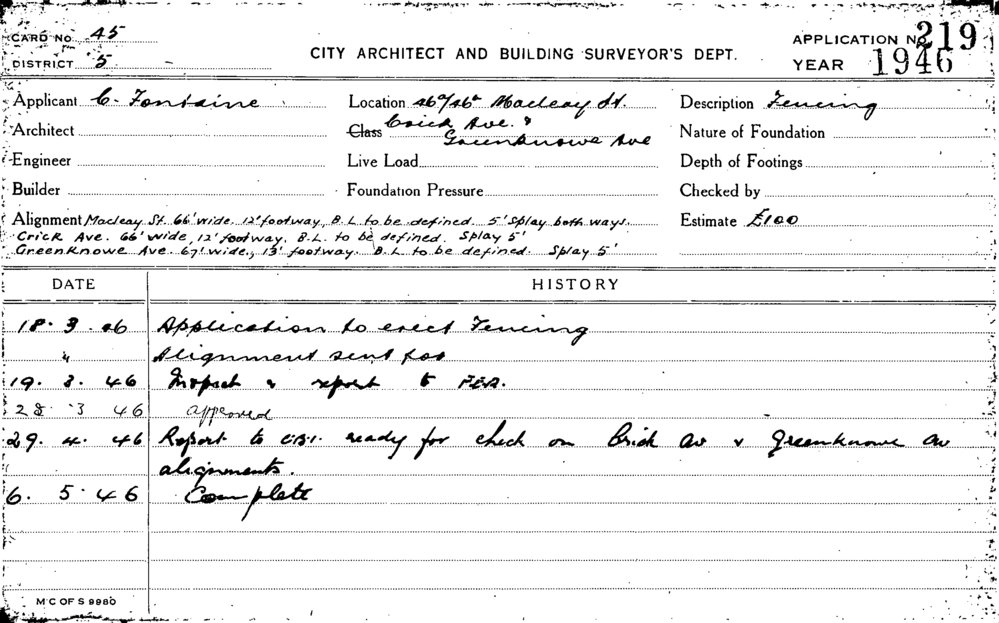 CARD No. 45
DISTRICT 5
CITY ARCHITECT AND BUILDING SURVEYOR'S DEPT.
APPLICATION No 219
YEAR 1946
Applicant C. Fontaine
Location Macleay St.
Description Fencing
Architect
Class Crick Ave. &
Greenknowe Ave
Nature of Foundation
Engineer
Live Load
Depth of Footings
Builder
Foundation Pressure
Checked by
Alignment Macleay St. 66' wide. 12' footway, B.L. to be defined. 5' Splay both ways.
Crick Ave. 66' wide, 12' footway. B.L. to be defined. Splay 5'
Greenknowe Ave. 67' wide, 13' footway. B.L. to be defined. Splay 5'
Estimate £100
DATE HISTORY
18. 3. 46 Application to erect Fencing
" Alignment sent for
19. 3. 46 Inspect & report to
28 3 46 approved
29. 4. 46 Report to C.B.I. ready for check on Crick Av & Greenknowe Av
alignments.
6. 5. 46 Complete
M C OF S 9980